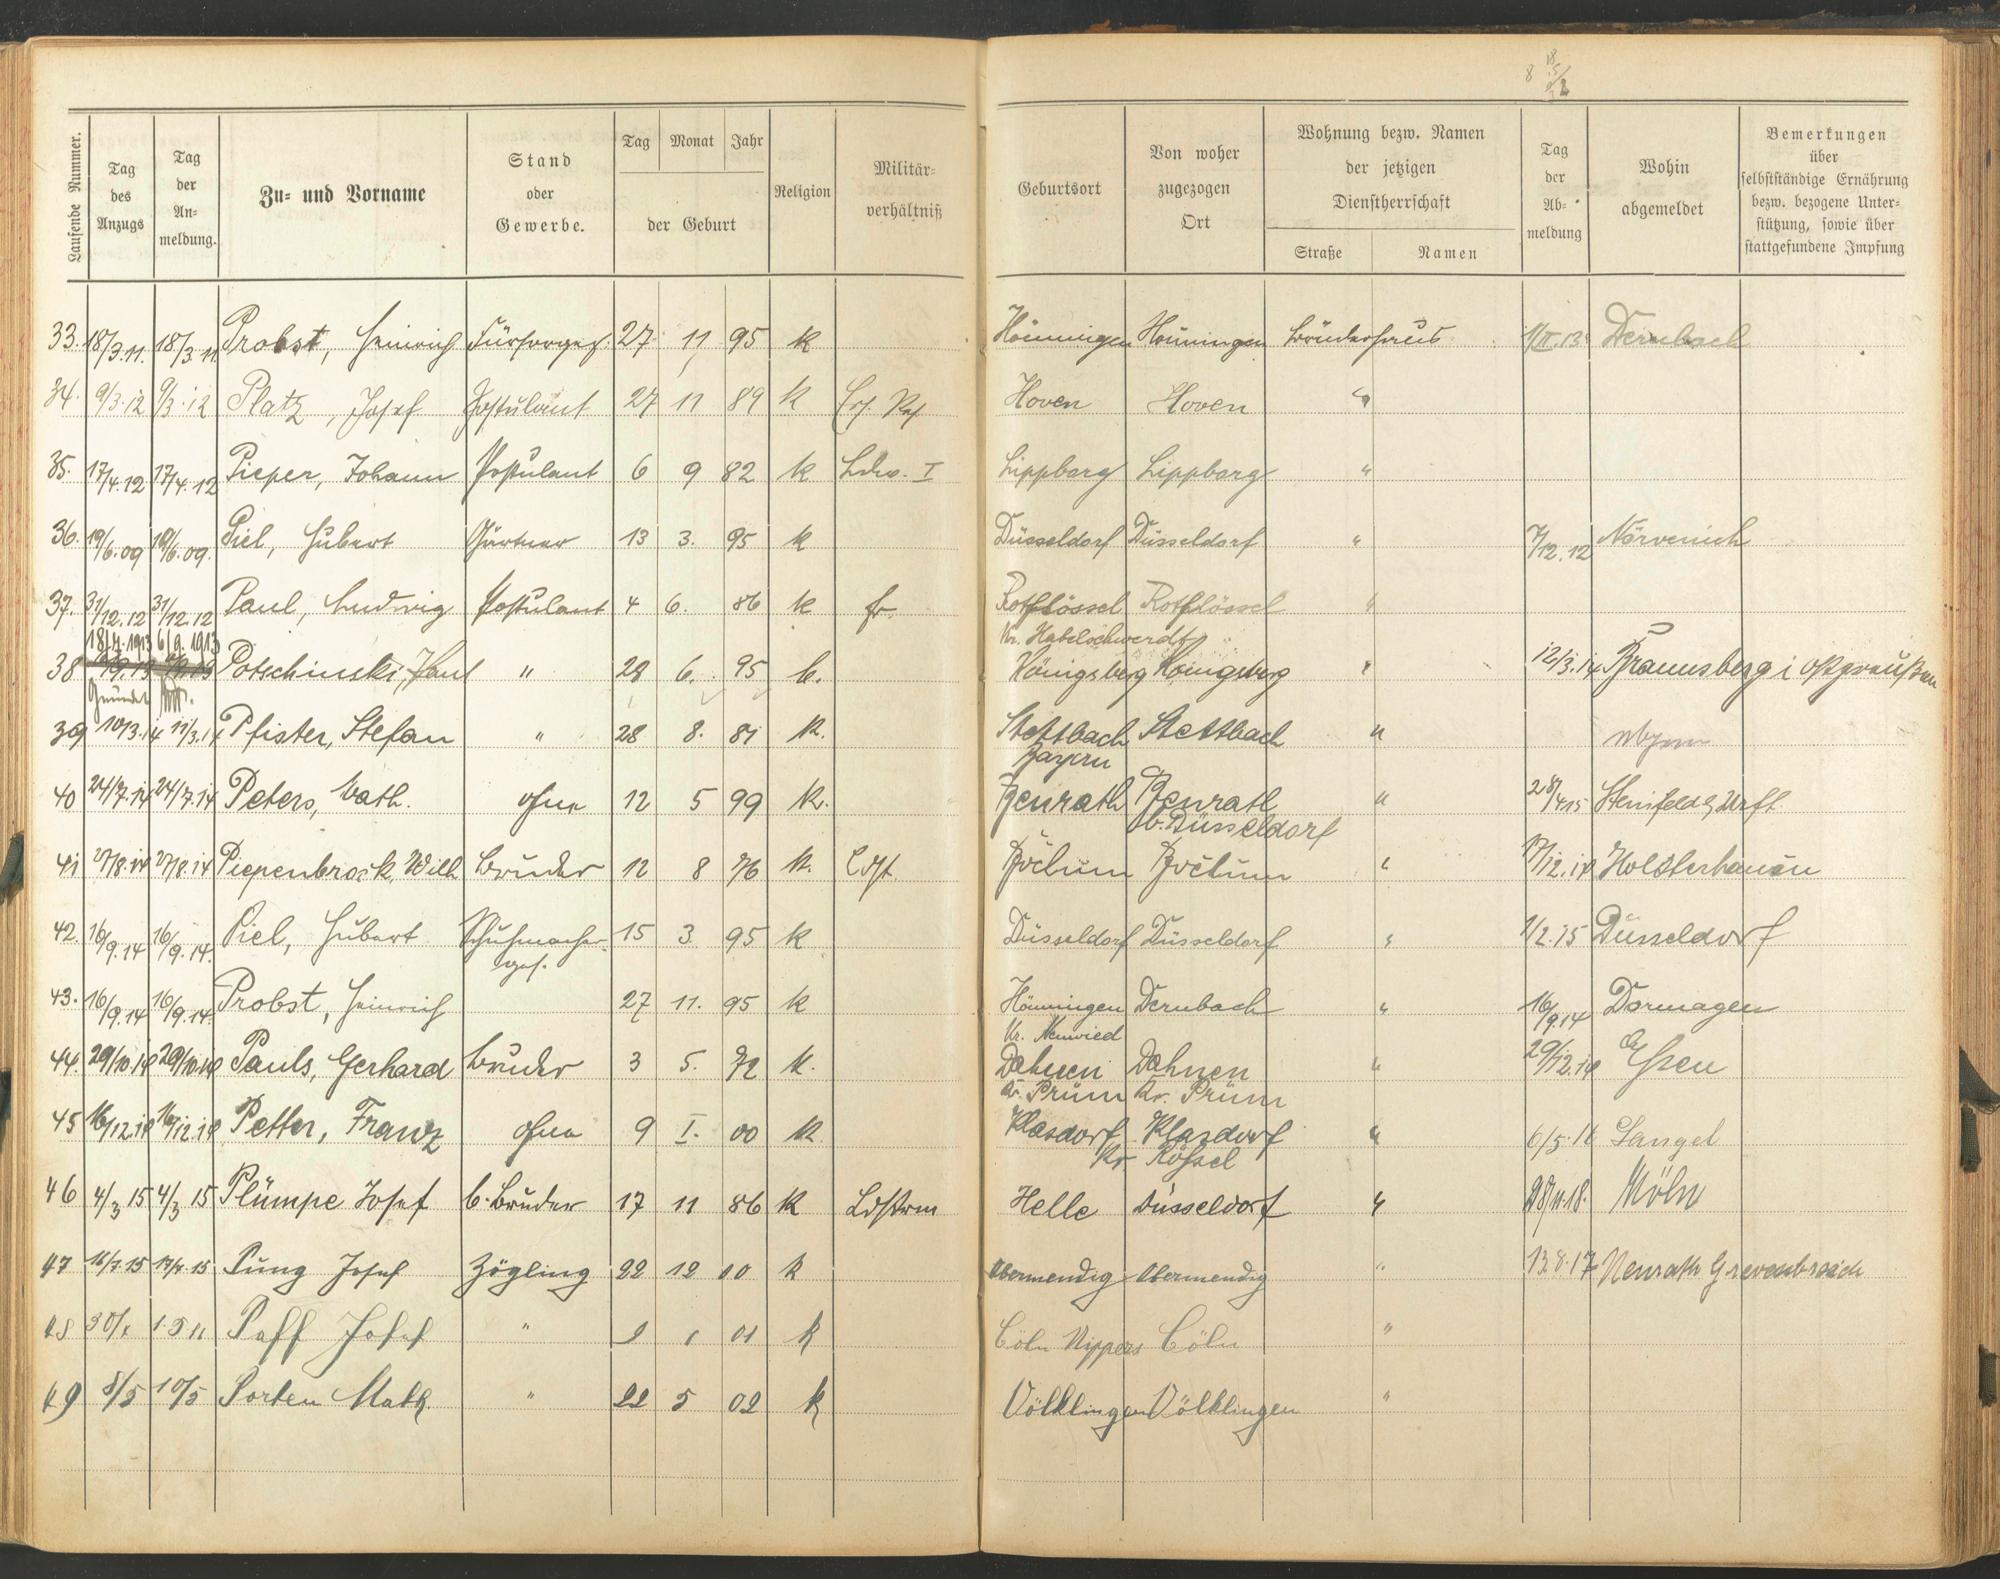 8 18/5 2
Laufende Nummer. Tag des Anzugs Tag der An- meldung. Zu- und Vorname Stand oder Gewerbe. Tag Monat Jahr der Geburt Religion Militär- verhältniß Geburtsort Von woher zugezogen Ort Wohnung bezw. Namen der jetzigen Dienstherrschaft Straße Namen Tag der Ab- meldung Wohin abgemeldet Bemerkungen über selbstständige Ernährung bezw. bezogene Unter- stützung, sowie über stattgefundene Impfung
33. 18/3 11. 18/3 11 Probst, Heinrich Fürsorgez. 27 11 95 k Hönningen Hönningen Brüderhaus 1/II.13 Dernbach
34. 9/3.12 9/3.12 Platz, Josef Postulant 27 11 89 k Ers. Res. Hoven Hoven "
35. 17/4.12 17/4.12 Pieper, Johann Postulant 6 9 82 k Ldw. I Lippborg Lippborg "
36. 19/6.09 19/6.09. Piel, Hubert Gärtner 13 3. 95 k Düsseldorf Düsseldorf " 7/12.12 Nörvenich
37. 31/12.12 31/12.12 Paul, Ludwig Postulant 4 6. 86 k Rothflössel Rothflössel "
Kr. Habelschwerdt
18/7.1913 6/9.1913
38 Potschinski, Paul " 28 6. 95 k. Königsberg Königsberg " 12/3.14 Braunsberg i Ostpreußen
39 10/3.14 11/3.14 Pfister, Stefan " 28 8. 81 k. Stettbach Stettbach "
Bayern
40 24/7.14 24/7.14 Peters, Math. ohne 12 5 99 k. Benrath Benrath " 28/4 15 Steinfeld b/ Urft
b. Düsseldorf
41 27/8.14 27/8.14 Piepenbrock, Wilh Bruder 12 8 76 k. Ldst. Bochum Bochum " 17/12.14 Holsterhausen
42. 16/9.14 16/9.14. Piel, Hubert Schuhmacher- 15 3 95 k Düsseldorf Düsseldorf " 1/2.15 Düsseldorf
ges.
43. 16/9.14 16/9.14. Probst, Heinrich 27 11. 95 k Hönningen Dernbach " 16/9.14 Dormagen
Kr. Neuwied
44. 29/10.14 29/10.14 Pauls, Gerhard Bruder 3 5. 72 k. Dahnen Dahnen " 29/12.14 Essen
Kr. Prüm Kr. Prüm
45 16/12.14 16/12.14 Petter, Franz ohne 9 I. 00 k Klasdorf Klasdorf " 6/5.16 Langel
Kr. Rößel
46 4/3 15 4/3 15 Plümpe Josef b. Bruder 17 11 86 k Ldstrm Helle Düsseldorf " 28/11.18. Köln
47 16/7.15 17/7.15 Pung Josef Zögling 22 12 00 k Obermendig Obermendig " 13.8.17 Neurath Grevenbroich
48 30/ Paff Josef " 1 01 k Cöln Nippes Cöln "
49 8/5 10/5 Porten Math. " 22 5 02 k Völklingen Völklingen "